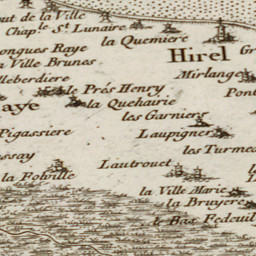 out de la Ville
Chap.le S.t Lunaire
la Quemiere
ongues Raye
Hirel
la Ville Brunes
Mirlange
lleberdiere
le Prés Henry
Pont
aye
la Quehairie
les Garniers
Pigassiere
Laupigner
les Turmes
ssay
Lautrouet
la Folville
la Ville Marie
la Bruyere
le Bas Fedeuil